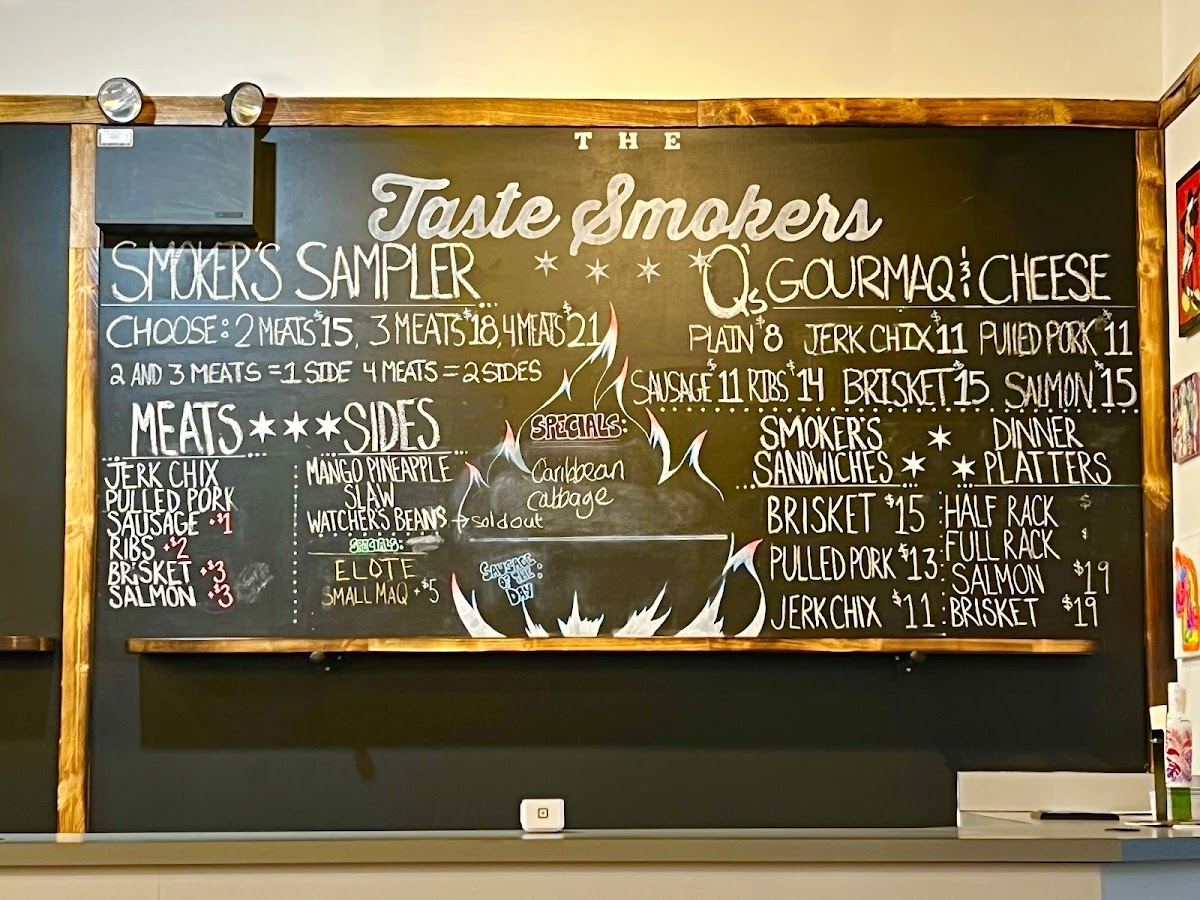 THE
Taste Smokers
SMOKER'S SAMPLER
CHOOSE: 2 MEATS $15, 3 MEATS $18, 4 MEATS $21
2 AND 3 MEATS = 1 SIDE 4 MEATS = 2 SIDES
MEATS
JERK CHIX
PULLED PORK
SAUSAGE +$1
RIBS +$2
BRISKET +$3
SALMON +$3
SIDES
MANGO PINEAPPLE
SLAW
WATCHER'S BEANS → sold out
SPECIALS:
ELOTE
SMALL MAQ +$5
SPECIALS:
Caribbean
cabbage
SAUSAGE
OF THE
DAY:
Q'S GOURMAQ & CHEESE
PLAIN $8 JERK CHIX $11 PULLED PORK $11
SAUSAGE $11 RIBS $14 BRISKET $15 SALMON $15
SMOKER'S
SANDWICHES
BRISKET $15
PULLED PORK $13
JERK CHIX $11
DINNER
PLATTERS
HALF RACK $
FULL RACK $
SALMON $19
BRISKET $19